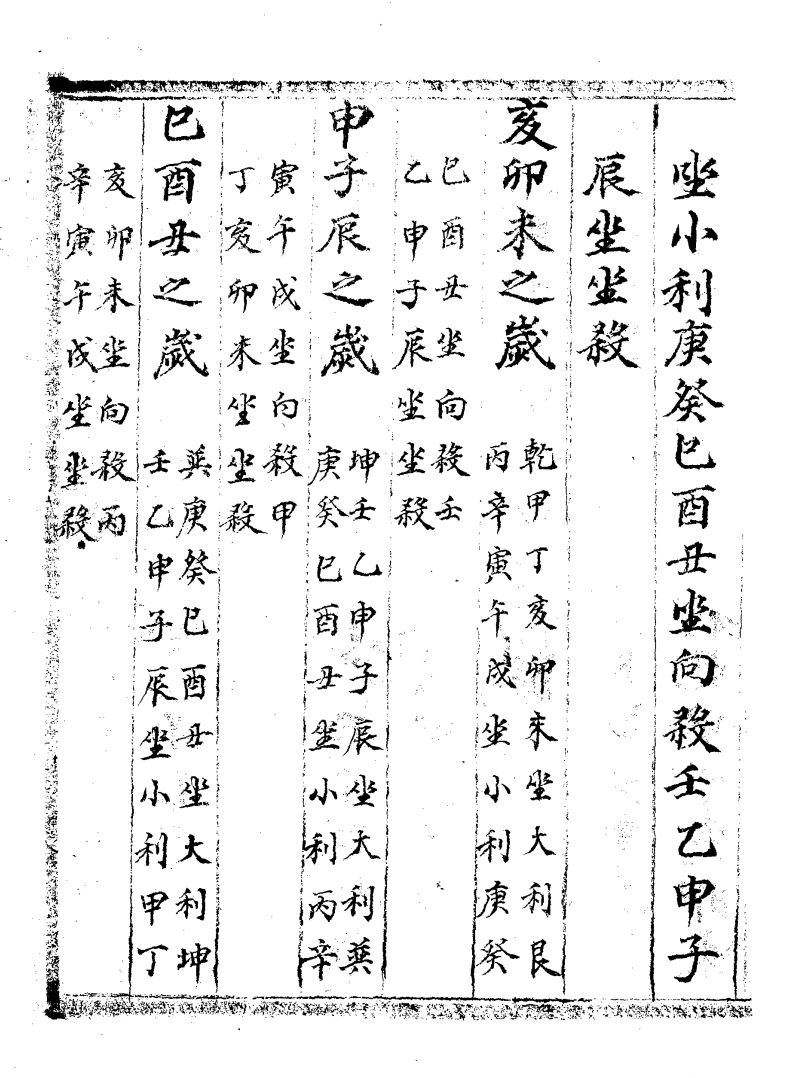 坐小利庚癸巳酉丑坐向殺壬乙申子
辰坐坐殺
亥卯未之歲
乾甲丁亥卯未坐大利艮
丙辛寅午戌坐小利庚癸
巳酉丑坐向殺壬
乙申子辰坐坐殺
申子辰之歲
坤壬乙申子辰坐大利巽
庚癸巳酉丑坐小利丙辛
寅午戌坐向殺甲
丁亥卯未坐坐殺
巳酉丑之歲
巽庚癸巳酉丑坐大利坤
壬乙申子辰坐小利甲丁
亥卯未坐向殺丙
辛寅午戌坐坐殺